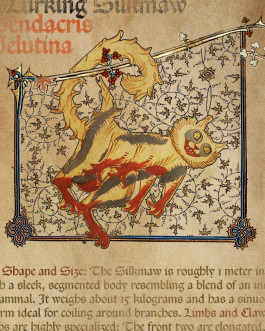 Lurking Silkmaw
endacris
elutina
Shape and Size: The Silkmaw is roughly 1 meter in
h a sleek, segmented body resembling a blend of an in
ammal. It weighs about 15 kilograms and has a sinuo
rm ideal for coiling around branches. Limbs and Claw
bs are highly specialized: The front two are elongated